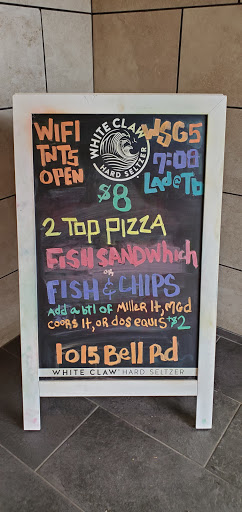 WIFI
TNTS
OPEN
WHITE CLAW
HARD SELTZER
WSG5
7:08
Lad@Tb
$8
2 TOP PIZZA
FISH SANDWhich
or
FISH & CHIPS
Add a btl of Miller lt, MGd
coors lt, or dos equis +$2
1015 Bell Rd
WHITE CLAW HARD SELTZER